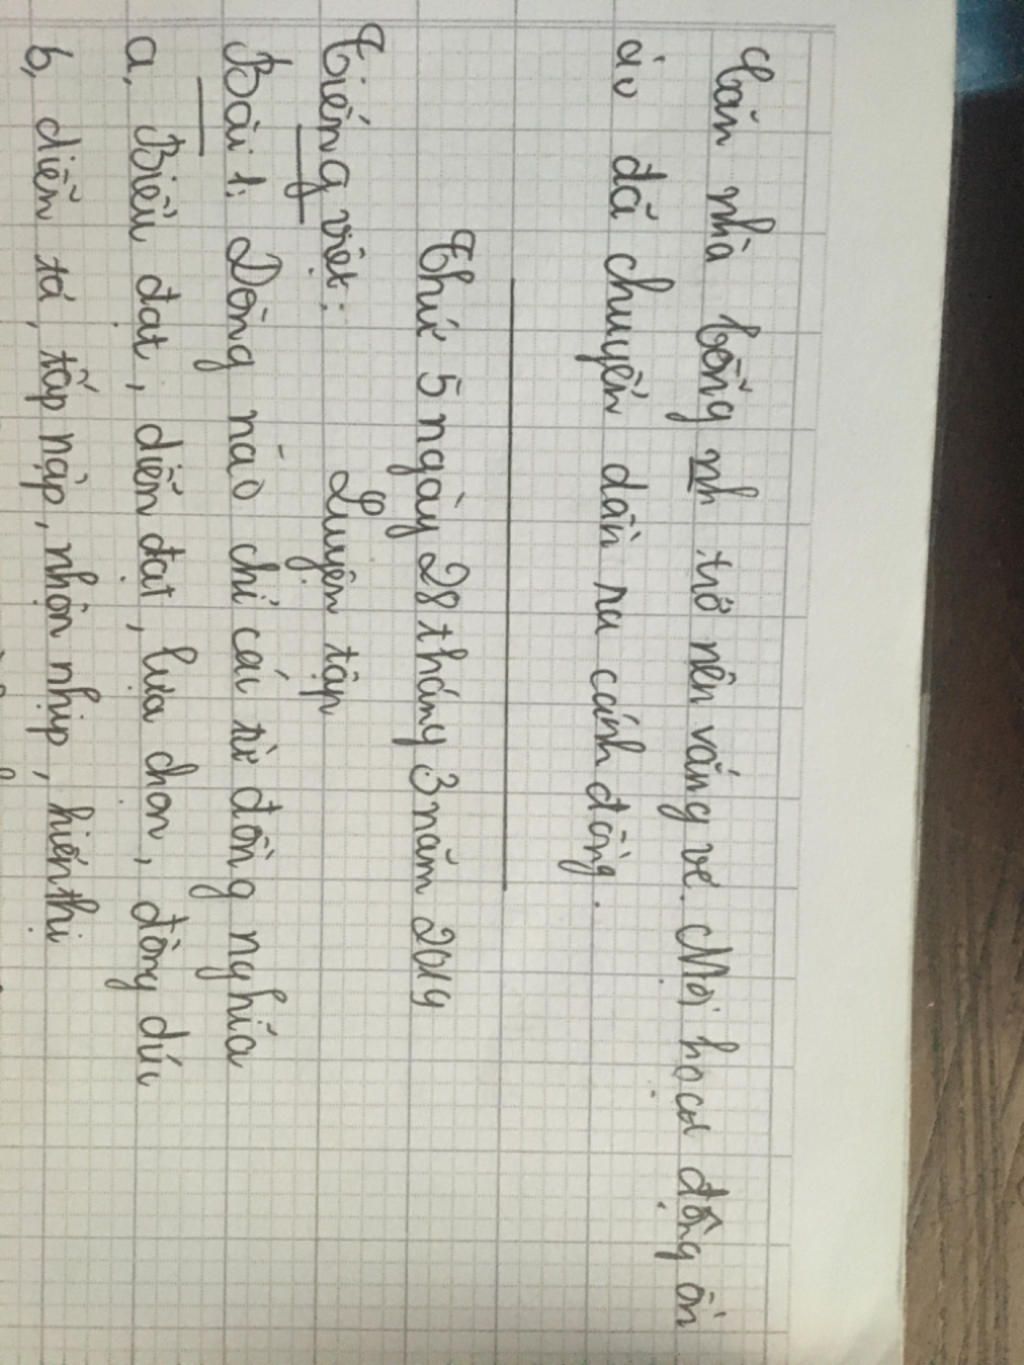 Căn nhà bỗng nh trở nên vắng vẻ. Mọi hoạt động ồn
ào đã chuyển dần ra cánh đồng.
Thứ 5 ngày 28 tháng 3 năm 2019
Tiếng việt: Luyện tập
Bài 1: Dòng nào chỉ các từ đồng nghĩa
a, Biểu đạt, diễn đạt, lựa chọn, đông đúc
b, diễn tả, tấp nập, nhộn nhịp, hiển thị